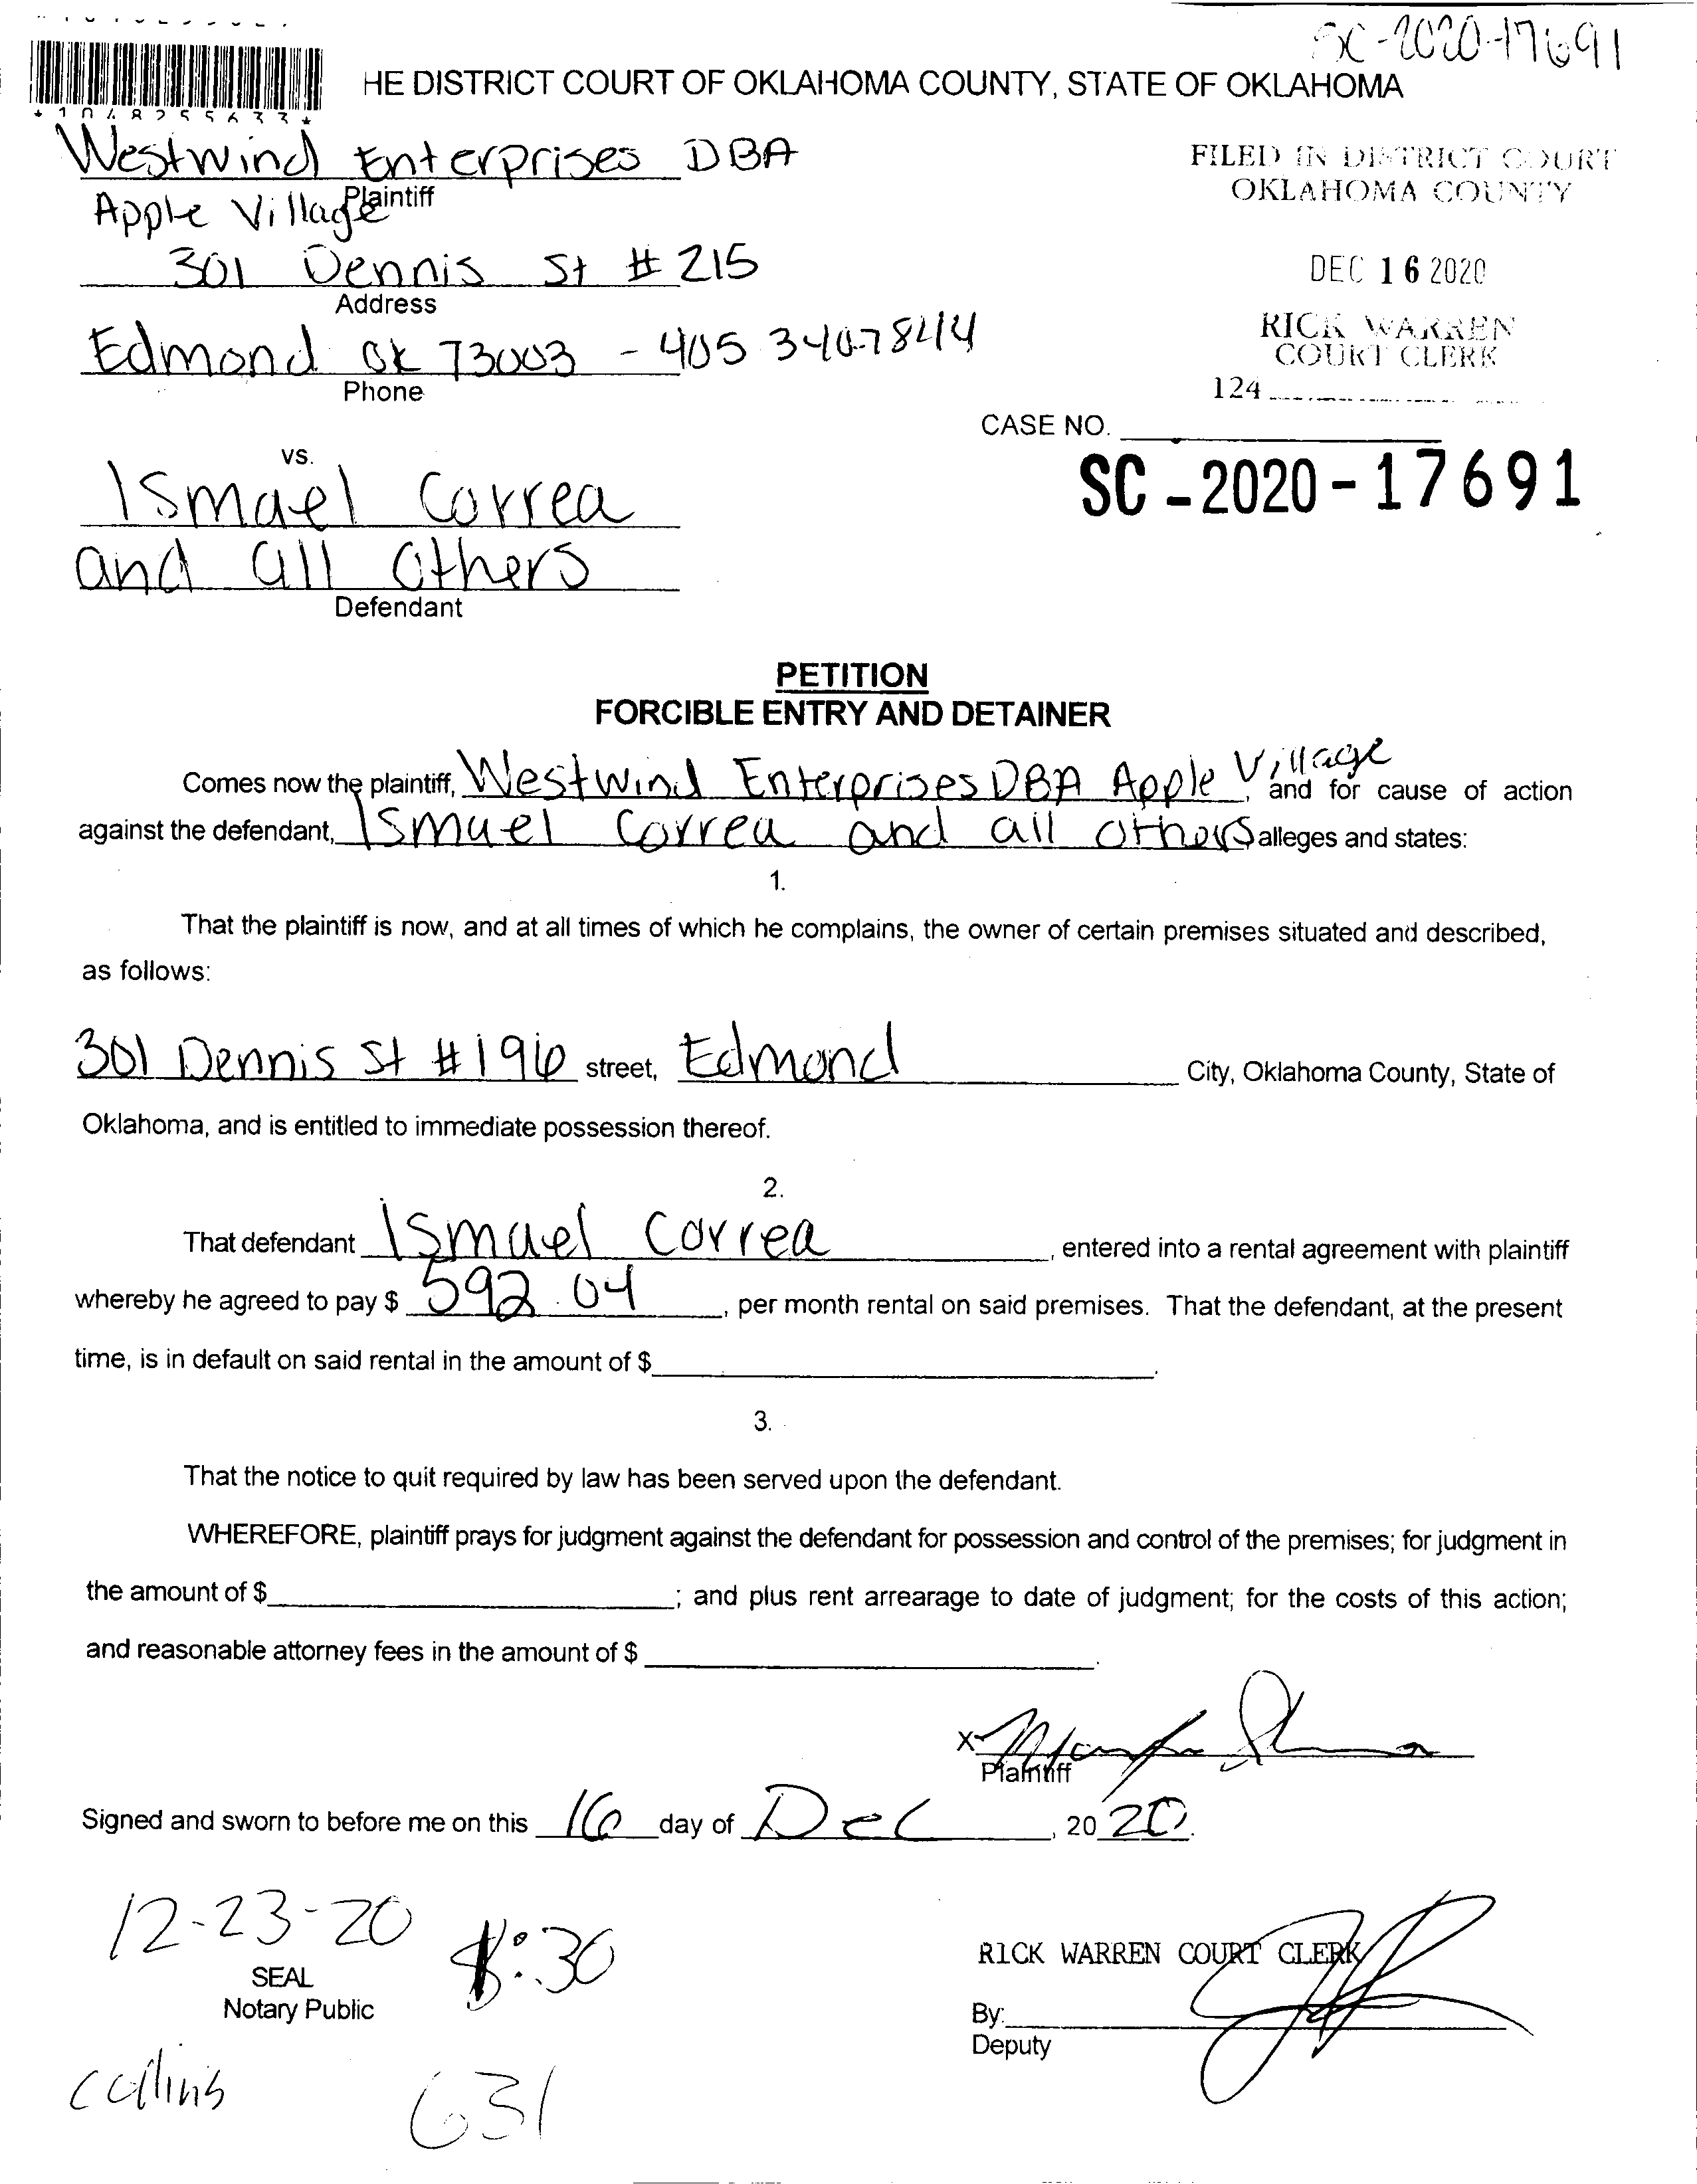 SC-2020-17691
HE DISTRICT COURT OF OKLAHOMA COUNTY, STATE OF OKLAHOMA
*1048255633*
Westwind Enterprises DBA
Plaintiff
Apple Village
301 Dennis St # 215
Address
Edmond OK 73003 - 405 340-7844
Phone
FILED IN DISTRICT COURT
OKLAHOMA COUNTY
DEC 16 2020
RICK WARREN
COURT CLERK
124
CASE NO.
SC-2020-17691
vs.
Ismael Correa
and all others
Defendant
PETITION
FORCIBLE ENTRY AND DETAINER
Comes now the plaintiff, Westwind Enterprises DBA Apple Village, and for cause of action
against the defendant, Ismael Correa and all others alleges and states:
1.
That the plaintiff is now, and at all times of which he complains, the owner of certain premises situated and described,
as follows:
301 Dennis St #196 street, Edmond City, Oklahoma County, State of
Oklahoma, and is entitled to immediate possession thereof.
2.
That defendant Ismael Correa, entered into a rental agreement with plaintiff
whereby he agreed to pay $ 592.04, per month rental on said premises. That the defendant, at the present
time, is in default on said rental in the amount of $ .
3.
That the notice to quit required by law has been served upon the defendant.
WHEREFORE, plaintiff prays for judgment against the defendant for possession and control of the premises; for judgment in
the amount of $ ; and plus rent arrearage to date of judgment; for the costs of this action;
and reasonable attorney fees in the amount of $ .
X
Plaintiff
Signed and sworn to before me on this 16 day of Dec, 20 20.
12-23-20 8:30
SEAL
Notary Public
RICK WARREN COURT CLERK
By:
Deputy
Collins 631